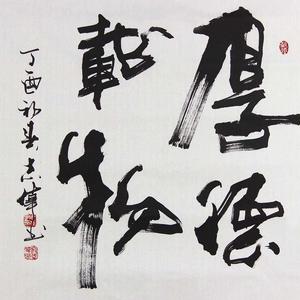 厚德
載物
丁酉初春志偉書